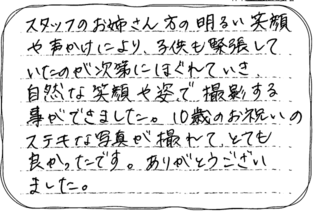 スタッフのお姉さん方の明るい笑顔
や声かけにより、子供も緊張して
いたのが次第にほぐれていき、
自然な笑顔や姿で撮影する
事ができました。10歳のお祝いの
ステキな写真が撮れて、とても
良かったです。ありがとうござい
ました。